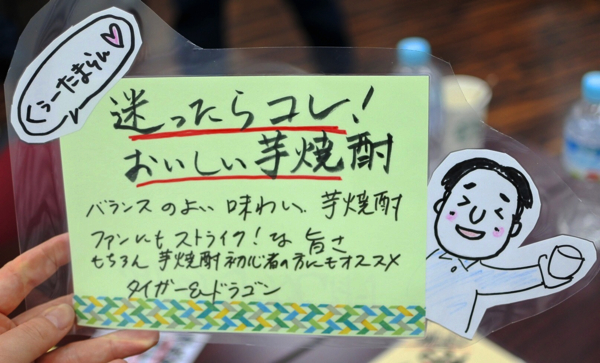 くぅーたまらん♡
迷ったらコレ!
おいしい芋焼酎
バランスのよい味わい。芋焼酎
ファンにもストライク!な旨さ
もちろん芋焼酎初心者の方にもオススメ
タイガー&ドラゴン